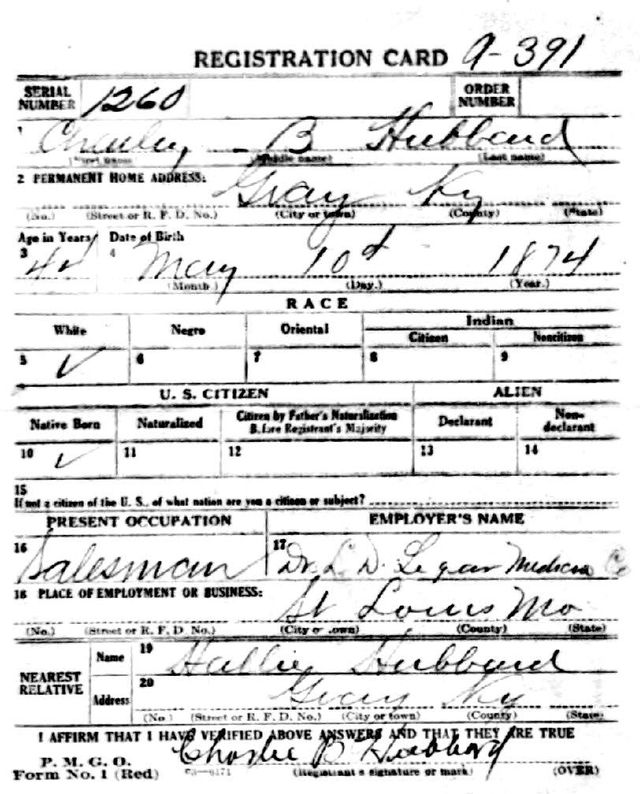 REGISTRATION CARD 9-391
SERIAL NUMBER 1260 ORDER NUMBER
1 Charley B Hubbard
(First name) (Middle name) (Last name)
2 PERMANENT HOME ADDRESS: Gray Ky
(No.) (Street or R. F. D. No.) (City or town) (County) (State)
Age in Years Date of Birth
3 44 4 May 10d 1874
(Month.) (Day.) (Year.)
RACE
White Negro Oriental Indian
Citizen Noncitizen
5 ✓ 6 7 8 9
U. S. CITIZEN ALIEN
Native Born Naturalized Citizen by Father's Naturalization Before Registrant's Majority Declarant Non-declarant
10 ✓ 11 12 13 14
15
If not a citizen of the U. S., of what nation are you a citizen or subject?
PRESENT OCCUPATION EMPLOYER'S NAME
16 Salesman 17 Dr. L. D. Legear Medicine Co
18 PLACE OF EMPLOYMENT OR BUSINESS:
St Louis Mo
(No.) (Street or R. F. D. No.) (City or town) (County) (State)
NEAREST RELATIVE Name 19 Hallie Hubbard
Address 20 Gray Ky
(No.) (Street or R. F. D. No.) (City or town) (County) (State)
I AFFIRM THAT I HAVE VERIFIED ABOVE ANSWERS AND THAT THEY ARE TRUE
P. M. G. O. Charlie B Hubbard
Form No. 1 (Red) (Registrant's signature or mark) (OVER)